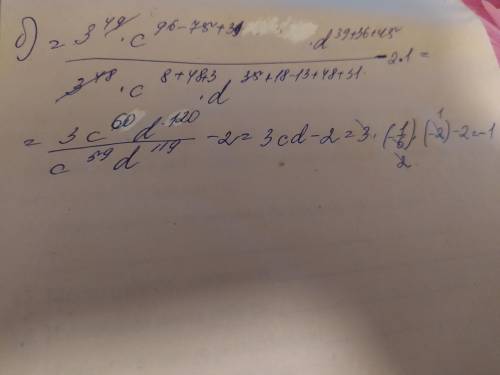 б) = 3^49 · c^96-75+39 · d^39+36+45
3^48 · c^8+48+3 · d^35+18-13+48+31 - 2·1 =
= 3c^60 d^120 / c^59 d^119 - 2 = 3cd - 2 = 3 · (-1/6) · (-2) - 2 = -1